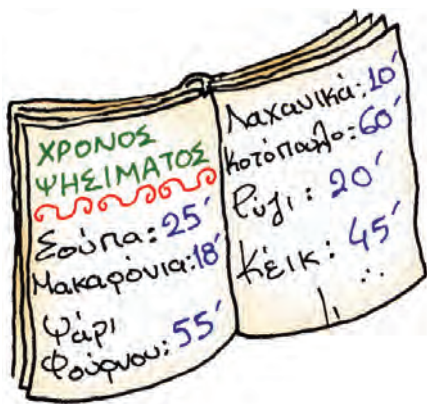 ΧΡΟΝΟΣ
ΨΗΣΙΜΑΤΟΣ
Σούπα: 25′
Μακαρόνια: 18′
Ψάρι
Φούρνου: 55′
Λαχανικά: 10′
Κοτόπουλο: 60′
Ρύζι: 20′
Κέικ: 45′